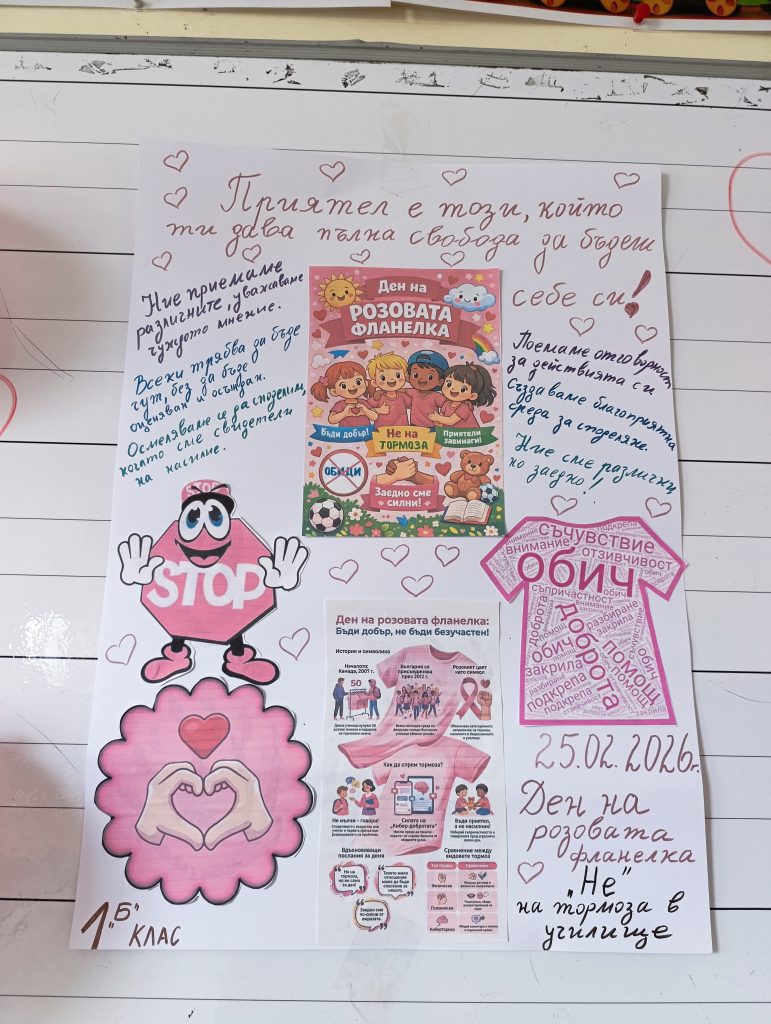 Приятел е този, който
ти дава пълна свобода да бъдеш
себе си!
Ние приемаме
различните, уважаваме
чуждото мнение.
Всеки трябва да бъде
чут, без да бъде
оценяван и осъждан.
Осмеляваме се да споделим,
когато сме свидетели
на насилие.
Ден на
РОЗОВАТА
ФЛАНЕЛКА
Бъди добър!
Не на
ТОРМОЗА
Приятели
завинаги!
ОБИДИ
Заедно сме
силни!
Поемаме отговорност
за действията си
Създаваме благоприятна
среда за споделяне.
Ние сме различни,
но заедно!
STOP
STOP
съчувствие
подкрепа
внимание
отзивчивост
обич
съпричастност
доброта
разбиране
закрила
помощ
обич
доброта
закрила
подкрепа
Ден на розовата фланелка:
Бъди добър, не бъди безучастен!
История и символика
Началото:
Канада, 2007 г.
50
България се
присъединява
през 2012 г.
Розовият цвят
като символ
Как да спрем тормоза?
Не мълчи – говори!
Силата на
"Кибер-добротата"
Бъди приятел,
а не насилник!
Вдъхновяващи
послания за деня
Не на
тормоза,
Заедно сме
по-силни от
омразата.
Сравнение между
видовете тормоз
Физически
Психически
Кибертормоз
25.02.2026г.
Ден на
розовата
фланелка
„Не"
на тормоза в
училище
1 "Б" КЛАС